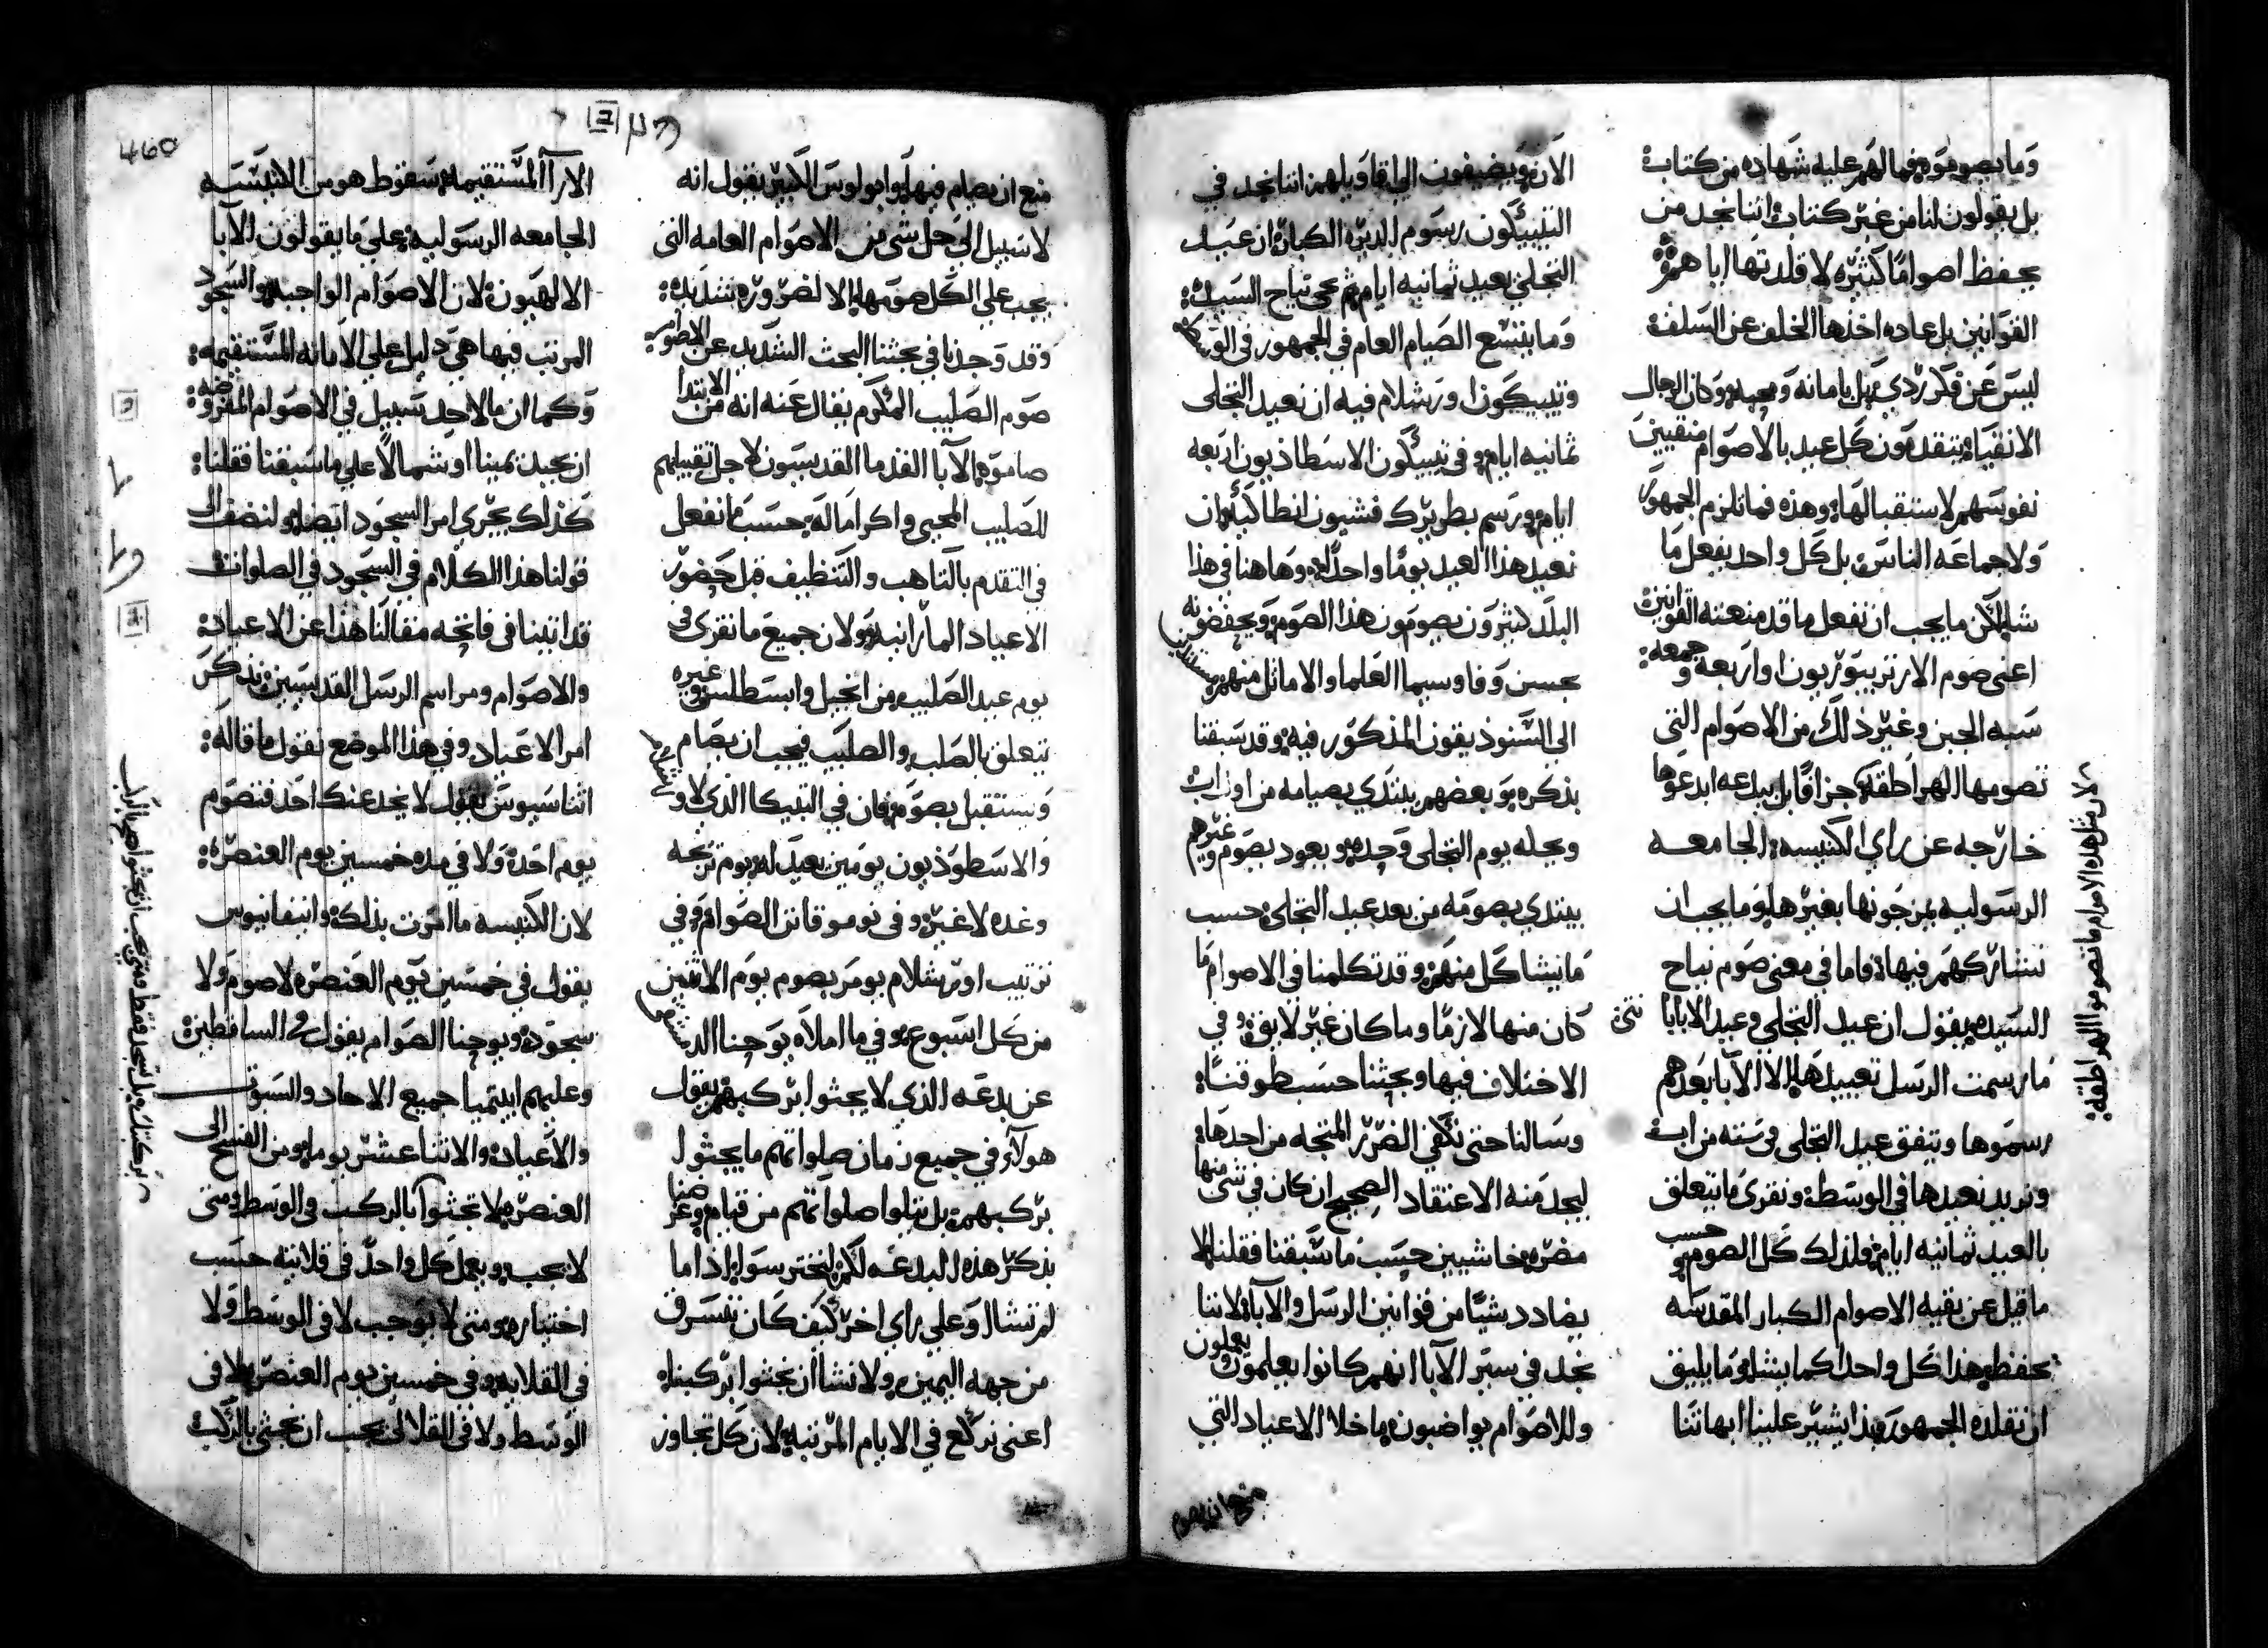 وما يصوموه فما لهم عليه شهاده من كتاب
بل يقولون لنا من غير كتاب اننا نجد من
يحفظ اصواما كثيره لا قلدتها اياهم
القوانين بل عاده اخذها الخلف عن السلف
ليس عن فكر ردي بل بامانه ومحبه وكان الرجال
الانقياء يتقدمون كل عيد بالاصوام منقيين
نفوسهم لاستقبالها وهذه فما تلزم الجمهور
ولا جماعه الناس بل كل واحد يفعل ما
شا لكن ما يجب ان نفعل ما قد منعته القوانين
اعني صوم الارتزيبوريون او اربعه وجمعه
سبه الجبن وغير ذلك من الاصوام التي
تصومها الهراطقه جزافا بل ببدعه ابدعوها
خارجه عن راي الكنيسه الجامعه
الرسوليه يمزجونها بغيرها وما يجب ان
نشاركهم فيها فاما في معنى صوم نياح
السيده يقول ان عيد التجلي وعيد الابابا نتي
ما رسمت الرسل تعييدها الا الابا بعدهم
رسموها ويتفق عيد التجلي في سته من اب
ونريد نعيدها في الوسطه ونقرى ما يتعلق
بالعيد ثمانيه ايام فلذلك كل الصوم وحسب
ما قيل عن بقيه الاصوام الكبار المقدسه
يحفظ هذا كل واحد كما يشا وما يليق
ان نقلده الجمهور وبذا يشير علينا ابهاتنا
لان مثل هذه الاصوام ما تصوموا الهراطقه
الان ويضيفون الي اقاويلهم اننا نجد في
التيبيكون رسوم الديره الكبار ان عيد
التجلي يعيد ثمانيه ايام ثم يجي نياح السيده
وما يتسع الصيام العام في الجمهور في
وتيبيكون اورشلام فيه ان نعيد التجلي
ثمانيه ايام وفي تيبيكون الاسطاذيون اربعه
ايام ورسم بطريرك قشيون انطاكيه ان
نعيد هذا العيد يوما واحدا وهاهنا في هذا
البلد كثيرون يصومون هذا الصوم ويحفظونه
بحسن وفا وسيما العلما والاماثل منهم
الى الشنوذيقون المذكور فيه وقد سبقنا
بذكره وبعضهم يبتدي بصيامه من اول اب
ويحله يوم التجلي وحده ويعود يصوم وغيرهم
يبتدي بصومه من بعد عيد التجلي حسب
ما يشا كل منهم وقد تكلمنا في الاصوام ما
كان منها لازما وما كان غير لايق وفي
الاختلاف فيها وبحثنا حسب طوقنا
وسالنا حتى نكفي الضرر المتجه من احدها
ليجد منه الاعتقاد الصحيح ان كان في شي منها
مضره خاشيين حسب ما سبقنا فقلنا الا
يضادد شيا من قوانين الرسل والابا لاننا
نجد في سير الابا انهم كانوا يعلمون ويعملون
وللاصوام يواضبون ما خلا الاعياد التي
منع ان يصام فيها وابولوس الكبير يقول انه
لا سبيل الي حل شي من الاصوام العامه التي
يجب علي الكل صومها الا لضروره شديده
وقد وجدنا في بحثنا البحث الشديد عن الاصوام
صوم الصليب المكرم يقال عنه انه من الابتدا
صاموه الابا القدما القديسون لاجل تقبيلهم
الصليب المحيي واكراما له حسب ما نفعل
في التقدم بالتاهب والتنظيف قبل حضور
الاعياد المارانيه ولان جميع ما نقرى في
يوم عيد الصليب من انجيل وابسطلس وغيره
يتعلق بالصلب والصليب فيجب ان يصام
ويستقبل بصوم فان في التيبيكا الذي
والاسطوذيون يومين يعيد له يوم تزيحه
وغده لا غير وفي نوموقانن الصوام وفي
ترتيب اورشلام يومر بصوم يوم الاثنين
من كل اسبوع وفي ما املاه يوحنا
عن بدعه الذي لا يجثوا بركبهم يقول
هولاء في جميع زمان صلواتهم ما يجثوا
بركبهم بل يتلوا صلواتهم من قيام وغرضنا
بذكر هذه البدعه لكن ليختر سواه اذا ما
لم تشال وعلي راي اخر كيف كان تتسرق
من جهه اليمين ولا نشا ان نجثوا بركبنا
اعني نركع في الايام المرتبه لان كل تجاوز
الارا المستقيمه سقوط هو من الكنيسه
الجامعه الرسوليه علي ما يقولون الابا
الالهيون لان الاصوام الواجبه والسجود
المرتب فيها هي دليل علي الامانه المستقيمه
وكما ان ما لاحد سبيل في الاصوام المفروضه
ان يحيد يمينا او شمالا علي ما سبقنا فقلنا
كذلك يجري امر السجود ايضا ولنضف الى
قولنا هذا الكلام في السجود في الصلوات
قد اتينا في فاتحه مقالنا هذا عن الاعياد
والاصوام ومراسم الرسل القديسين نذكر
امر الاعياد وفي هذا الموضع نقول ما قاله
اثناسيوس يقول لا يخدعنك احد فتصوم
يوم احد ولا في مده خمسين يوم العنصره
لان الكنيسه ما امرت بذلك وابيفانيوس
يقول في خمسين يوم العنصره لا صوم ولا
سجود ويوحنا الصوام يقول في الساقطين
وعليهم ايبتميا جميع الاحاد والسبوت
والاعياد والاثنا عشر يوما ومن الفسح الى
العنصره لا تجثوا بالركب في الوسط ومتى
لا يجب ويعمل كل واحد في قلايته حسب
اختياره ومتى لا يوجب لا في الوسط ولا
في القلايه وفي خمسين يوم العنصره لا في
الوسط ولا في القلالي يجب ان نجثي بالركب
460